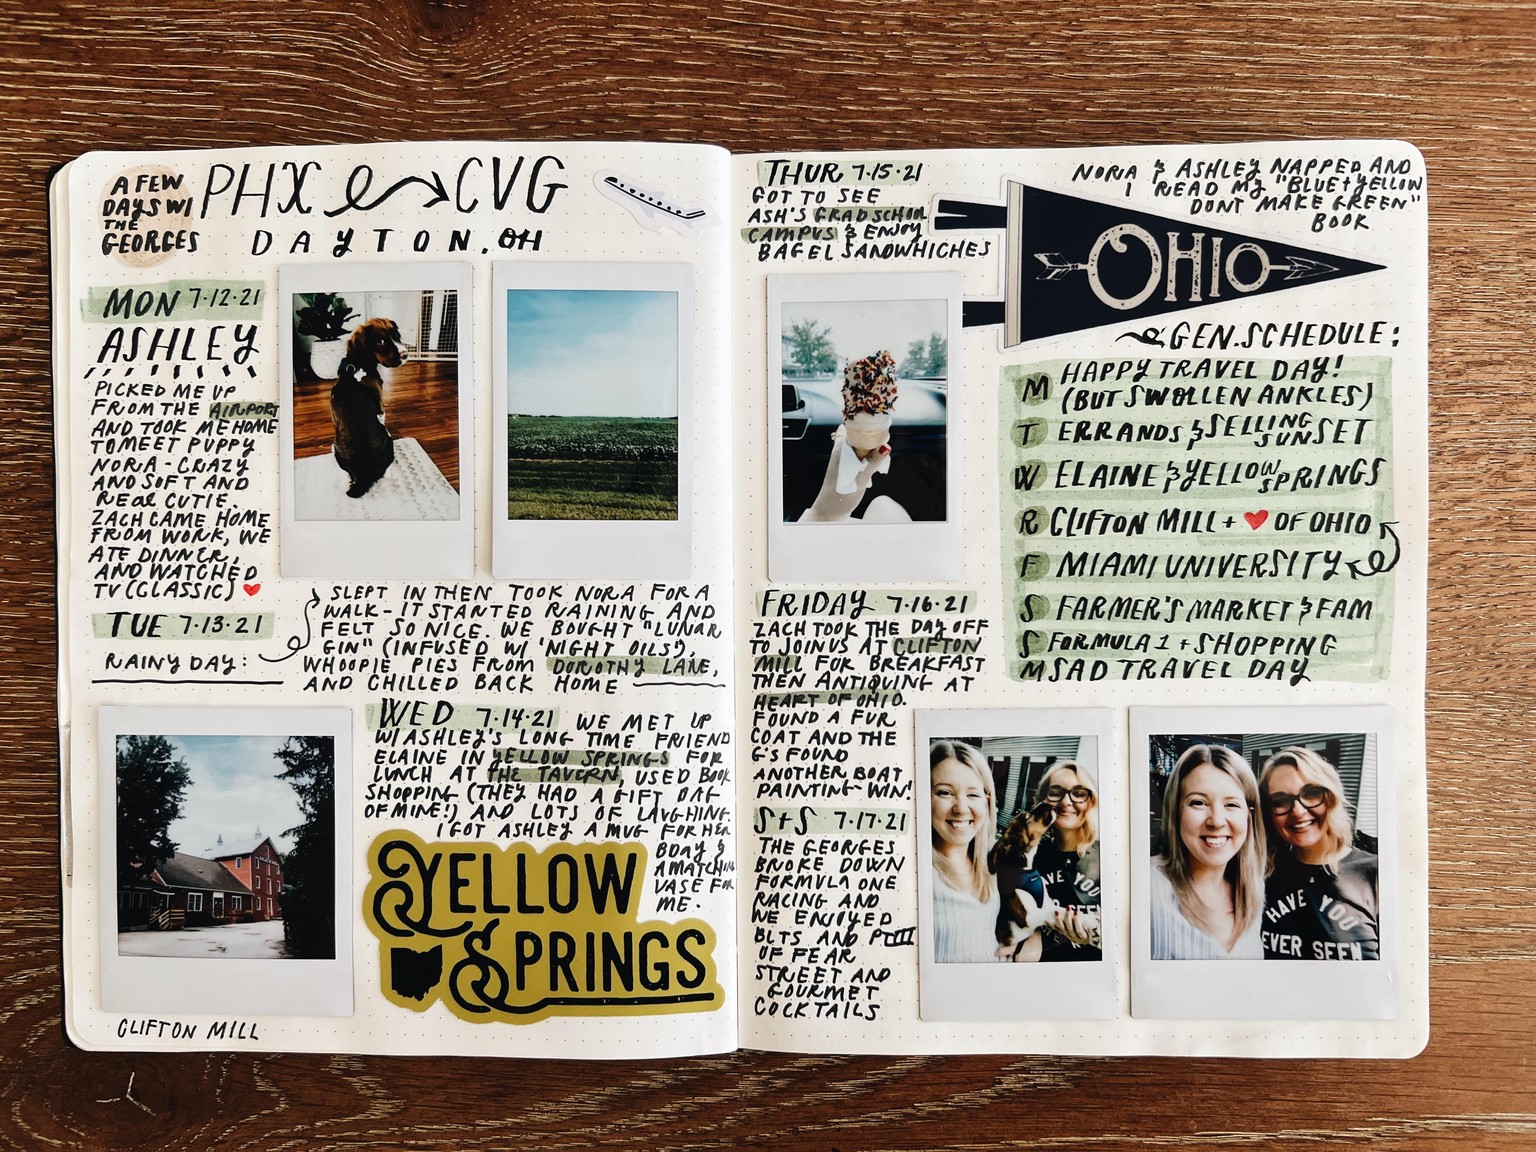 A FEW
DAYS W/
THE
GEORGES
PHX CVG
DAYTON, OH
MON 7.12.21
ASHLEY
PICKED ME UP
FROM THE AIRPORT
AND TOOK ME HOME
TO MEET PUPPY
NORA - CRAZY
AND SOFT AND
REAL CUTIE.
ZACH CAME HOME
FROM WORK, WE
ATE DINNER,
AND WATCHED
TV (CLASSIC) ❤
TUE 7.13.21
RAINY DAY:
SLEPT IN THEN TOOK NORA FOR A
WALK - IT STARTED RAINING AND
FELT SO NICE. WE BOUGHT "LUNAR
GIN" (INFUSED W/ 'NIGHT OILS'),
WHOOPIE PIES FROM DOROTHY LANE,
AND CHILLED BACK HOME
CLIFTON MILL
WED 7.14.21 WE MET UP
W/ASHLEY'S LONG TIME FRIEND
ELAINE IN YELLOW SPRINGS FOR
LUNCH AT THE TAVERN, USED BOOK
SHOPPING (THEY HAD A GIFT BAG
OF MINE!) AND LOTS OF LAUGHING.
I GOT ASHLEY A MUG FOR HER
BDAY &
A MATCHING
VASE FOR
ME.
YELLOW
SPRINGS
THUR 7.15.21
GOT TO SEE
ASH'S GRAD SCHOOL
CAMPUS & ENJOY
BAGEL SANDWHICHES
NORA & ASHLEY NAPPED AND
I READ MY "BLUE + YELLOW
DONT MAKE GREEN"
BOOK
OHIO
GEN. SCHEDULE:
M HAPPY TRAVEL DAY!
(BUT SWOLLEN ANKLES)
T ERRANDS & SELLING SUNSET
W ELAINE & YELLOW SPRINGS
R CLIFTON MILL + ❤ OF OHIO
F MIAMI UNIVERSITY
S FARMER'S MARKET & FAM
S FORMULA 1 + SHOPPING
M SAD TRAVEL DAY
FRIDAY 7.16.21
ZACH TOOK THE DAY OFF
TO JOIN US AT CLIFTON
MILL FOR BREAKFAST
THEN ANTIQUING AT
HEART OF OHIO.
FOUND A FUR
COAT AND THE
G'S FOUND
ANOTHER BOAT
PAINTING - WIN!
S+S 7.17.21
THE GEORGES
BROKE DOWN
FORMULA ONE
RACING AND
WE ENJOYED
BLTS AND
OF FEAR
STREET AND
GOURMET
COCKTAILS
HAVE YOU
EVER SEEN
HAVE YOU
EVER SEEN